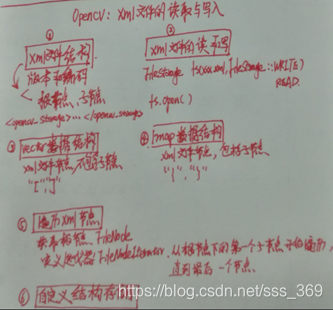 Opencv: xml文件的读取与写入
①
xml文件结构
版本和编码
< 根节点、子节点
<opencv_storage>...</opencv_storage>
②
xml文件的读写
FileStorage fs(xxx.xml, FileStorage::WRITE)
READ.
fs.open()
③ vector数据结构
xml文件节点, 不包括子节点
"[", "]"
④ map数据结构
xml文件节点, 包括子节点
"{", "}"
⑤ 遍历xml节点
FileNode
定义迭代器FileNodeIterator, 从根节点下的第一个子节点开始遍历,
直到最后一个节点.
⑥ 自定义结构
https://blog.csdn.net/sss_369